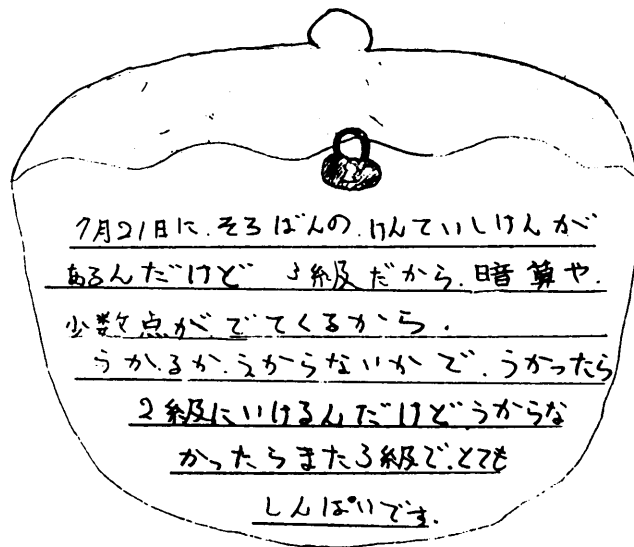 7月21日に.そろばんの.けんていしけんが
あるんだけど 3級だから.暗算や.
少数点がでてくるから.
うかるか.うからないかで.うかったら
2級にいけるんだけどうからな
かったらまた3級で.とても
しんぱいです.